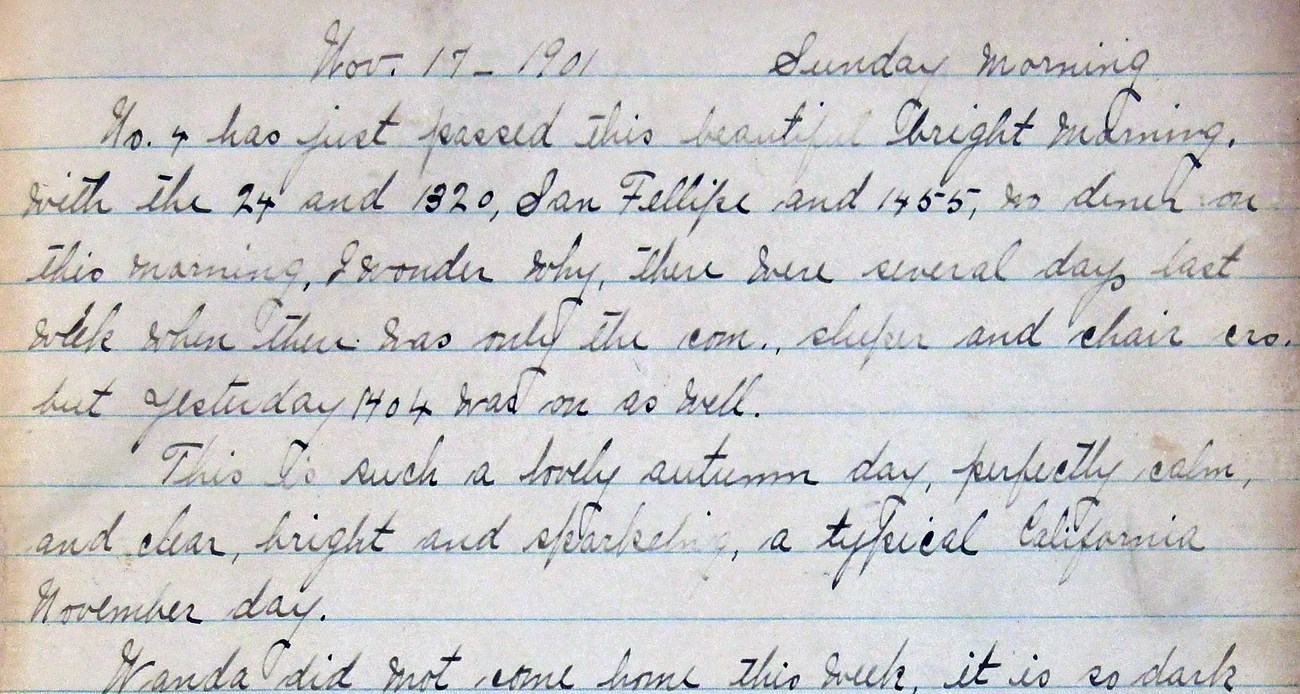 Nov. 17 - 1901 Sunday Morning
No. 4 has just passed this beautiful bright morning.
with the 24 and 1320, San Fellipe and 1455, no diner on
this morning, I wonder why, there were several days last
week when there was only the com., sleeper and chair crs.
but yesterday 1404 was on as well.
This is such a lovely autumn day, perfectly calm,
and clear, bright and sparkeling, a typical California
November day.
Wanda did not come home this week, it is so dark